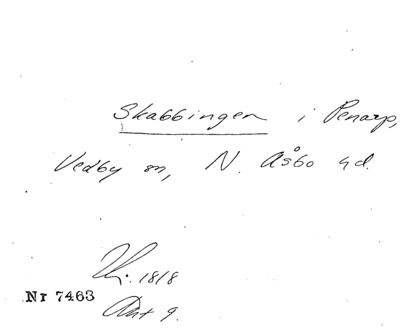 Skabbingen i Penarp,
Vedby sn, N. Åsbo hd.
1818
Nr 7463
Akt 9.